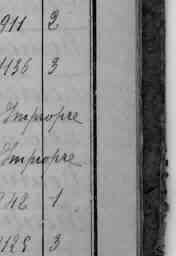 911 2
1136 3
Impropre
Impropre
212 1
1125 3